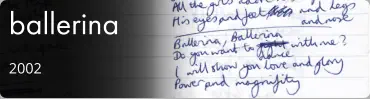 ballerina
2002
All the girls
His eyes and feet and legs
and nose
Ballerina, Ballerina
Do you want to with me?
dance
I will show you love and glory
Power and magnifity